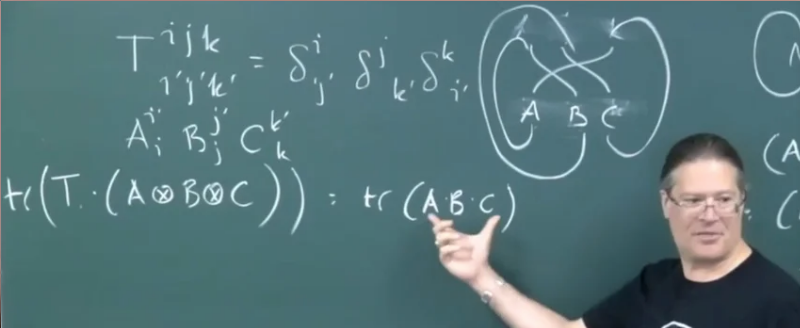 T^{ijk}_{i'j'k'} = δ^i_{j'} δ^j_{k'} δ^k_{i'}
A^{i'}_i B^{j'}_j C^{k'}_k
tr(T·(A⊗B⊗C)) = tr(A·B·C)
A B C
(A
(